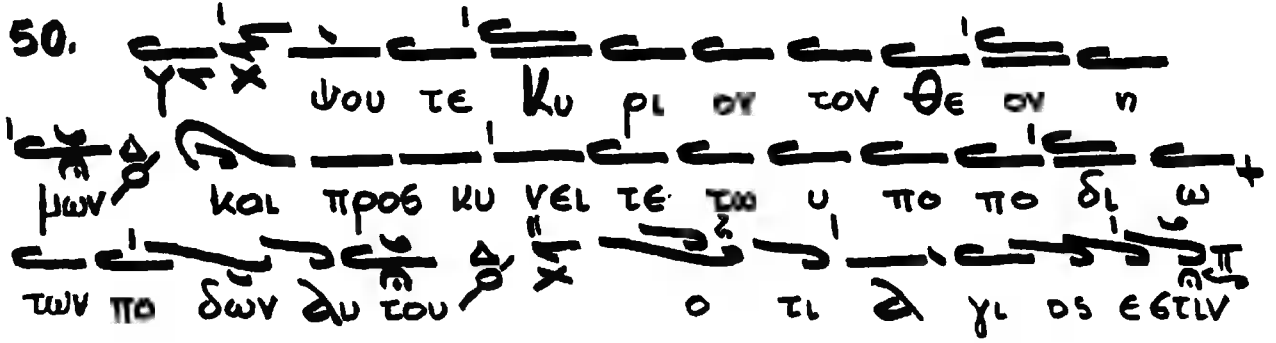 50. Υ ψου τε Κυ ρι ον τον Θε ον η
μων Δ και προς κυ νει τε τω υ πο πο δι ω
των πο δων αυ του Δ ο τι α γι ος ε στιν π